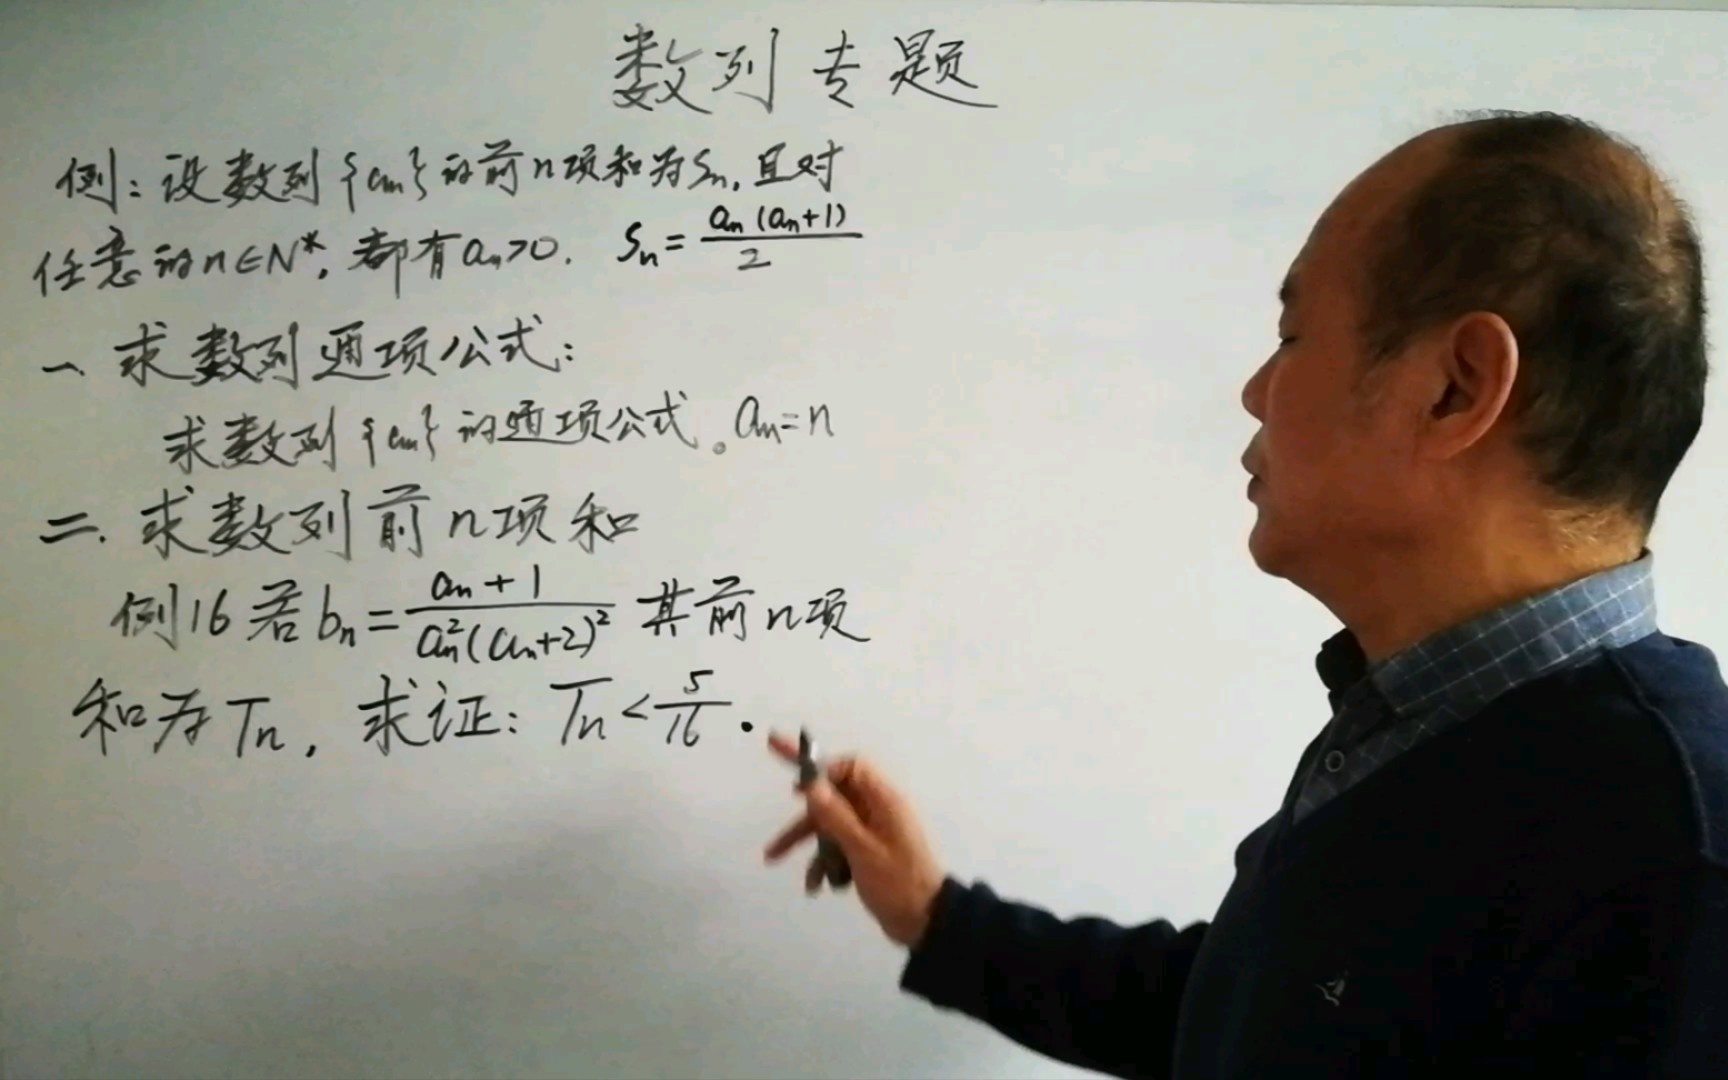 数列专题
例：设数列{an}的前n项和为Sn，且对
任意的n∈N*，都有an>0. Sn=an(an+1)/2
一、求数列通项公式：
求数列{an}的通项公式。an=n
二.求数列前n项和
例16 若bn=an+1/an²(an+2)² 其前n项
和为Tn，求证：Tn<5/16.